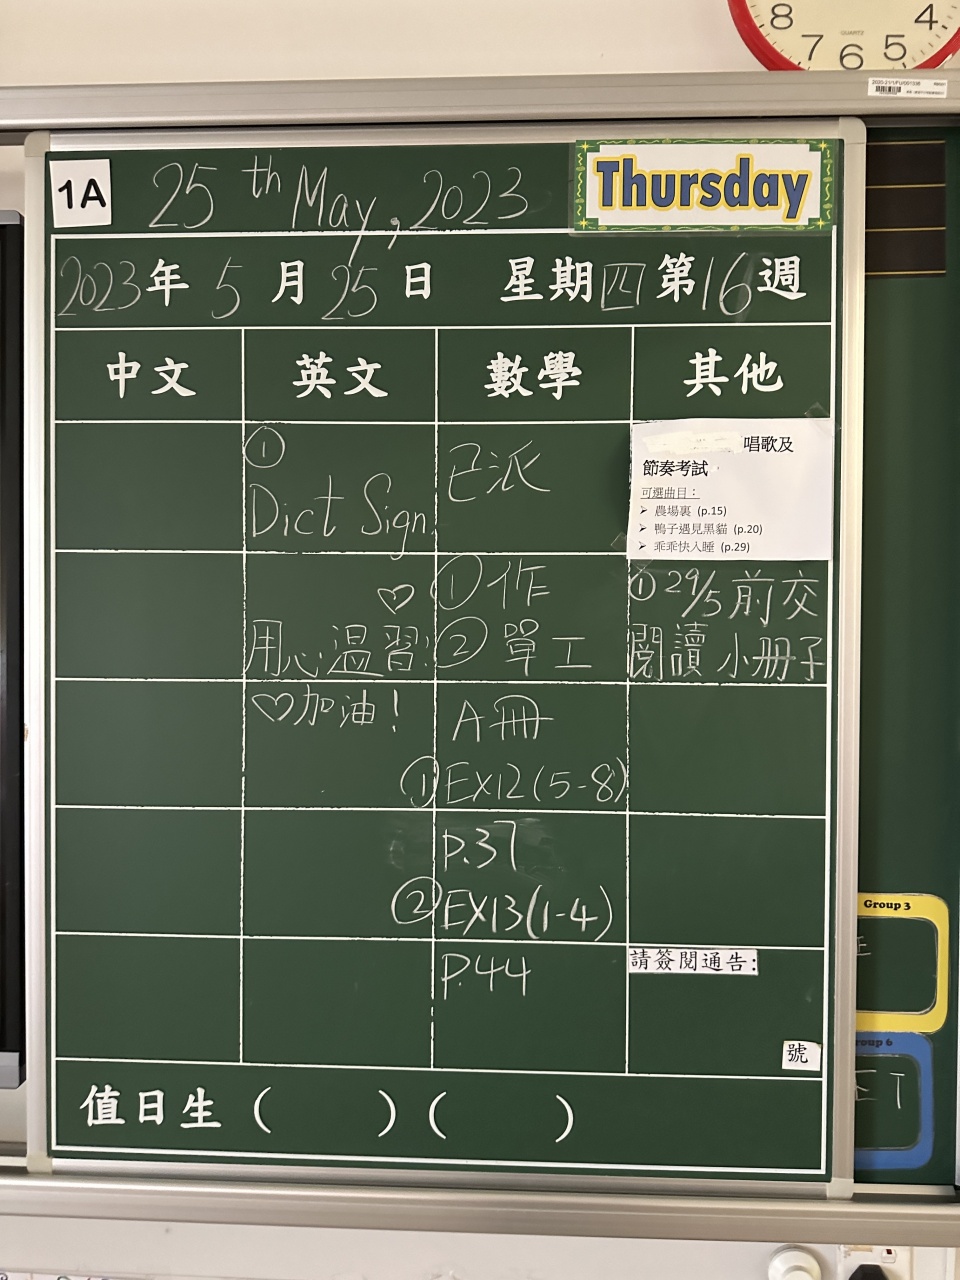 8 4
7 6 5
QUARTZ
1A 25th May, 2023 Thursday
2023年 5月 25日 星期四第16週
中文 英文 數學 其他
①
Dict Sign.
♡
用心温習!
♡加油!
已派
①作
②單工
A冊
①EX12(5-8)
p.37
②EX13(1-4)
P.44
唱歌及
節奏考試
可選曲目：
➤ 農場裏 (p.15)
➤ 鴨子遇見黑貓 (p.20)
➤ 乖乖快入睡 (p.29)
①29/5前交
閱讀小冊子
請簽閱通告:
號
值日生 ( ) ( )
Group 3
roup 6
ET